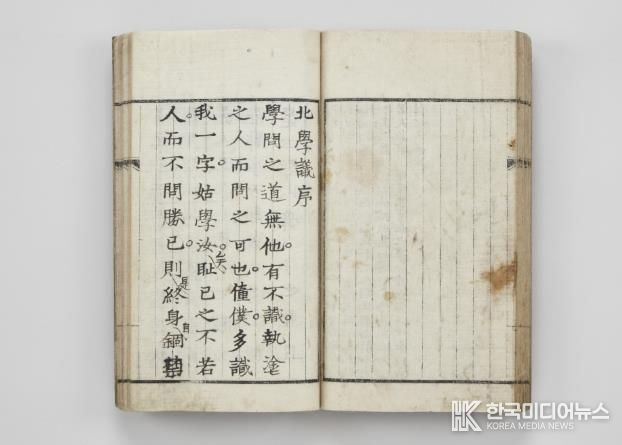 北學議序
學問之道無他。有不識。執塗
之人而問之可也。僮僕。多識
我一字。姑學汝。矣恥己之不若
人。而不問勝己。則是終身自錮
한국미디어뉴스
KOREA MEDIA NEWS